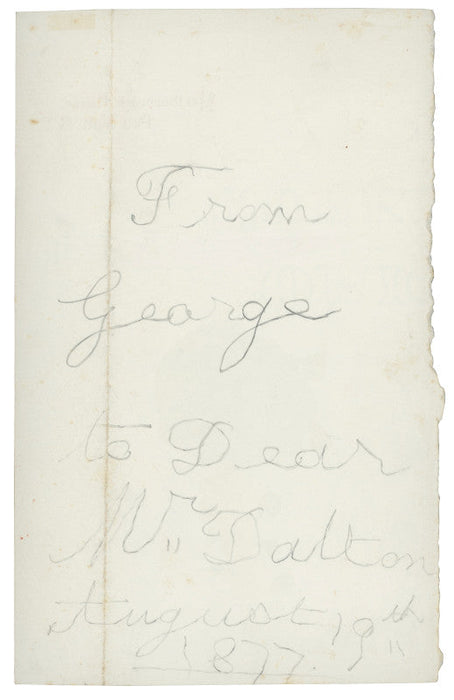 From
George
to Dear
Mr Dalton
August 19th
1877.